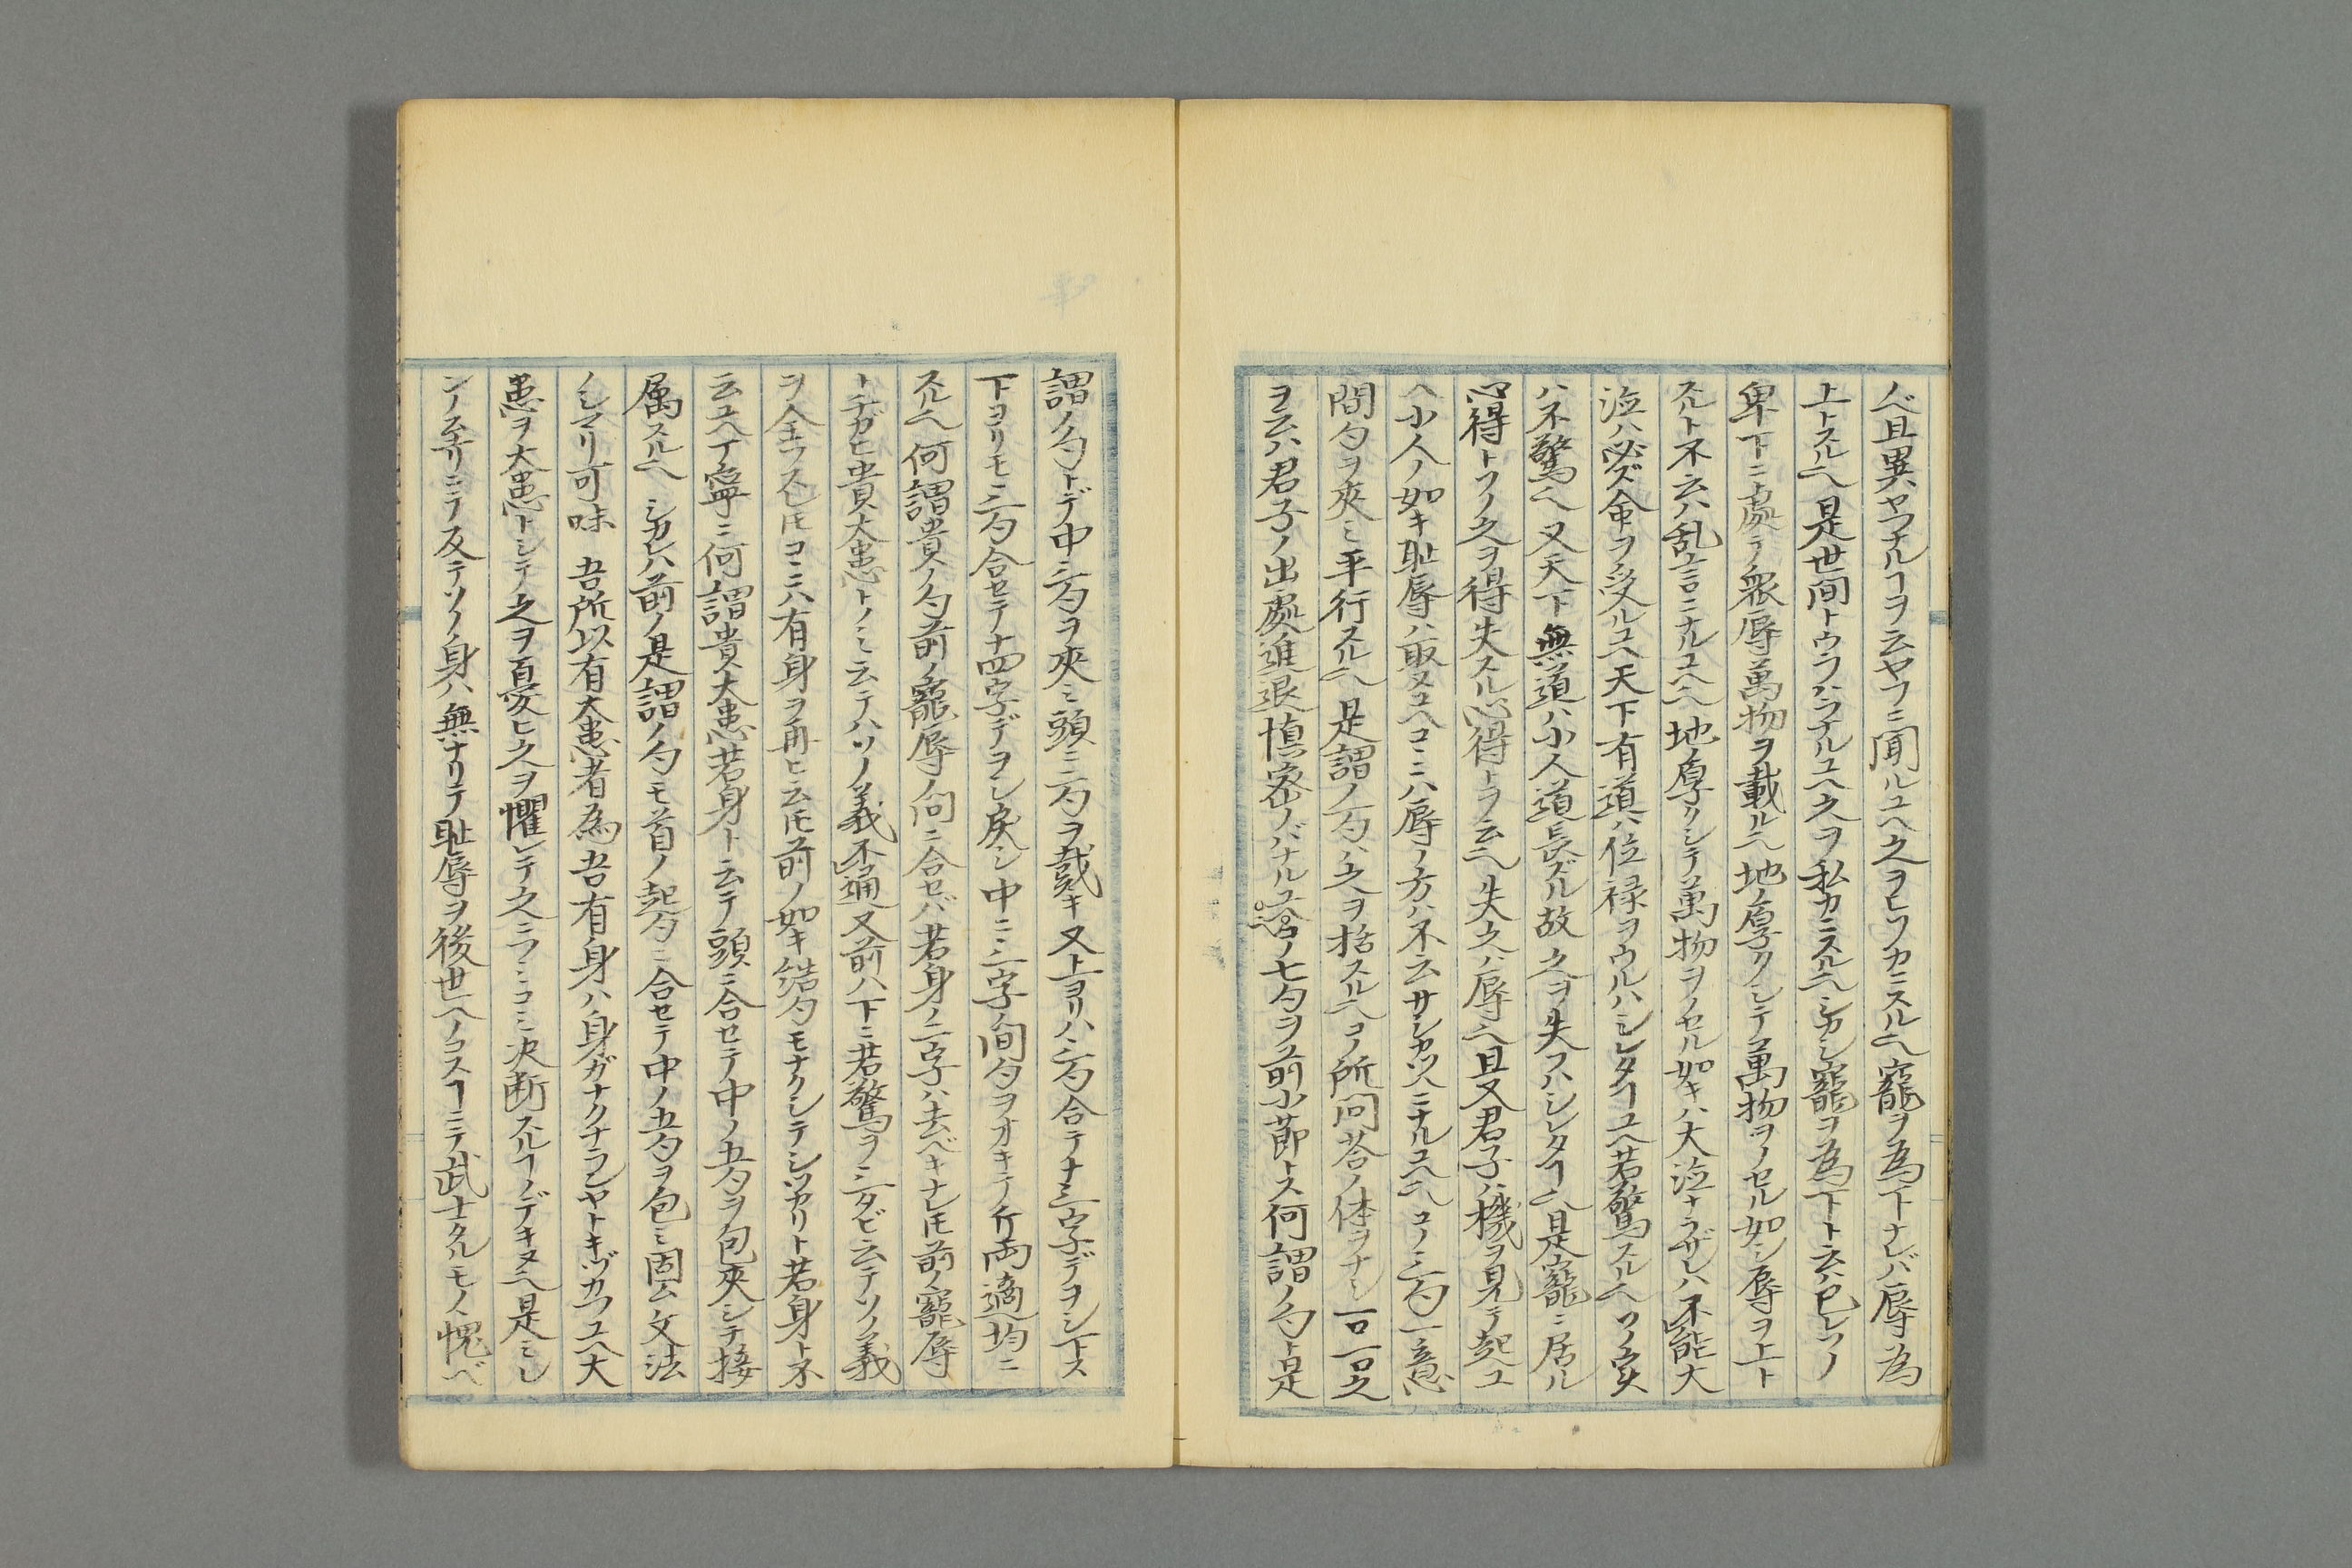 ノベ且異ヤフナルヿヲ云ヤフニ聞ルユヘ之ヲヒソカニスル寵ヲ為下ナレバ辱為
上トスル是世間トウラハラナルユヘ之ヲ私カニスルシカシ寵ヲ為下ト云ハ已レソノ
卑下ニ處テ衆辱萬物ヲ載ル地ノ厚クシテ萬物ヲノセル如シ辱ヲ上ト
スルト不云ハ乱言ニナルユヘ地ノ厚クシテ萬物ヲノセル如キハ大泣ナラザレハ不能大
泣ハ必ズ命ヲ受ルユヘ天下有道ハ位禄ヲウルハシレタヿユヘ若驚スルソノ实
ハ不驚又天下無道ハ小人道長ズル故之ヲ失フハシレタヿ是寵ニ居ル
心得トソノ之ヲ得失スル心得トヲ云失之ハ辱且又君子ハ機ヲ見テ起ユ
ヘ小人ノ如キ耻辱ハ取ヌユヘコヽニハ辱ノ方ハ不云サシカツヘニナルユヘコノ三句一意
問句ヲ夾ミ平行スル是謂ノ句ハ之ヲ括スルコノ所問荅ノ体ヲナシ一口一口之
ヲ云ハ君子ノ出處進退慎密ノバナルユヘコノ七句ヲ前小節トス何謂ノ句ト是
謂ノ句トデ中三句ヲ夾ミ頭ニ二句ヲ戴キ又上ヨリハ三句合テ十三字デヲシ下ス
下ヨリモ三句合セテ十四字デヲシ戻シ中ニ三字ノ間句ヲオキテ斤両適均ニ
スル何謂貴ノ句前ノ寵辱ノ問ニ合セバ若身ノ二字ハ去ベキナレ𪜈前ノ寵辱
トチガヒ貴大患トノミ云テハソノ義不通又前ハ下ニ若驚ヲ三タビ云テソノ義
ヲ全フス𪜈コヽニハ有身ヲ再ヒ云𪜈前ノ如キ結句モナクシテシツカリト若身ト不
云ユヘ丁寧ニ何謂貴大患若身ト云テ頭ニ合セテ中ノ五句ヲ包夾シテ接
属スルシカレハ前ノ是謂ノ句モ首ノ起句ニ合セテ中ノ五句ヲ包ミ固ム文法
ノシマリ可味 吾所以有大患者為吾有身ハ身ガナクナランヤトキヅカフユヘ大
患ヲ大患トシテ之ヲ憂ヒ之ヲ懼レテ之ニフミコミ決断スルヿノデキヌ是ミレ
ンノ至リニテ反テソノ身ハ無ナリテ耻辱ヲ後世ヘノコスヿニテ武士タルモノヽ愧ベ